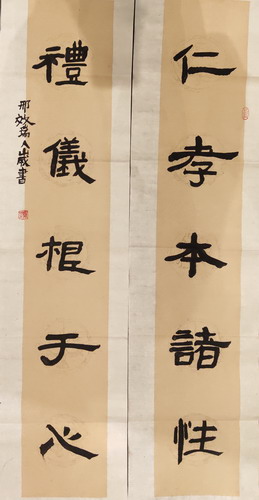 仁孝本諸性
禮儀根于心
邢妙瑞八歲書